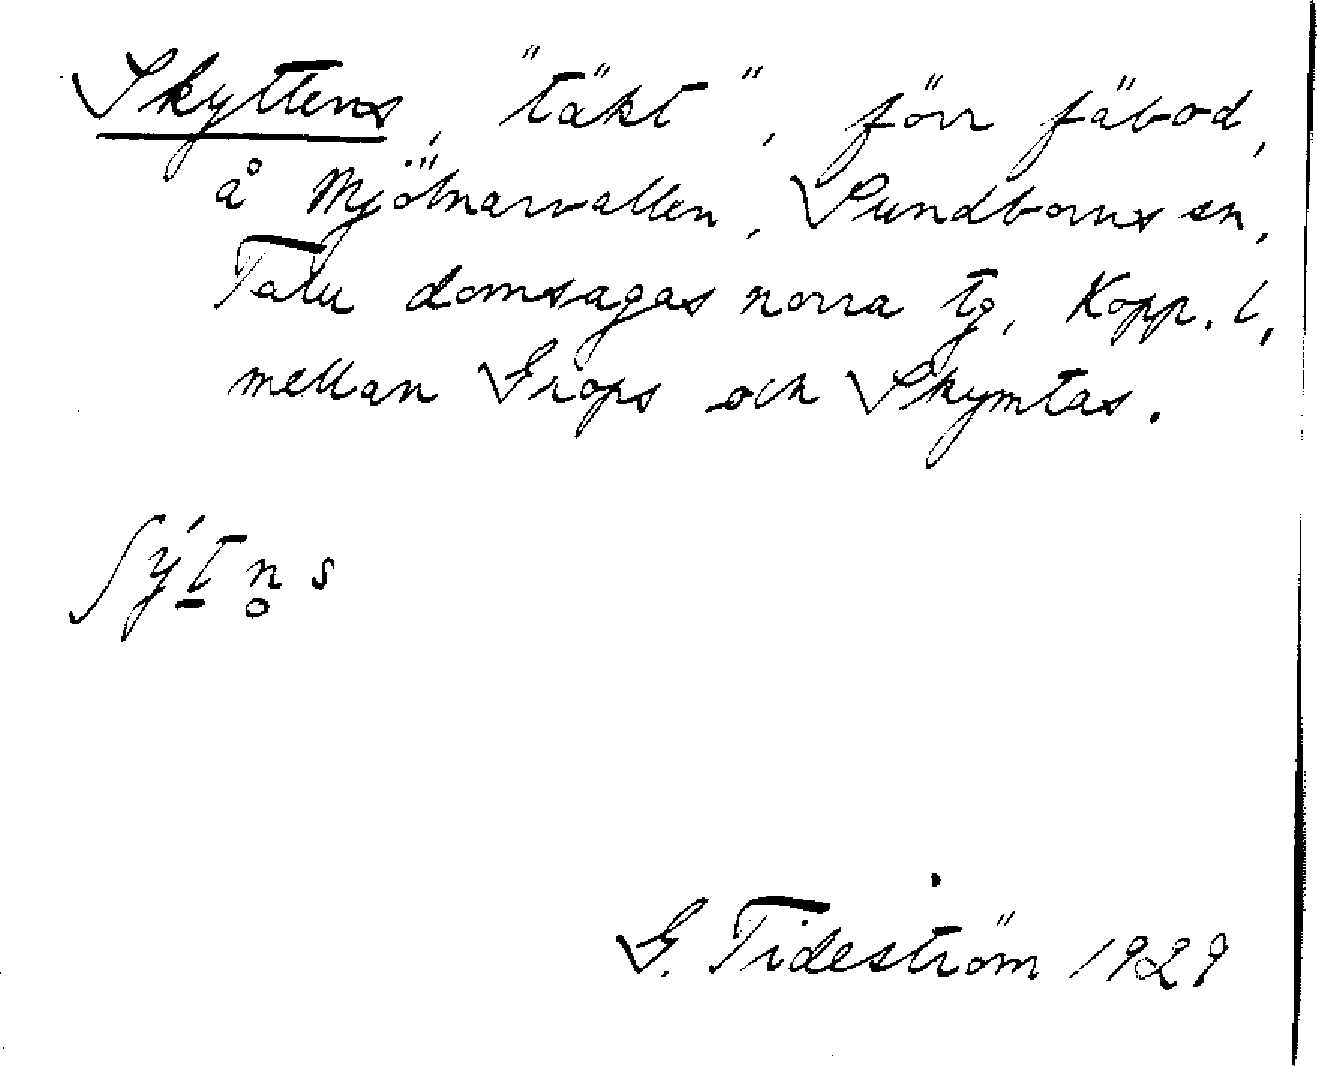 Skyttens, "täkt", förr fäbod,
å Mjölnarvallen, Sundborns sn,
Falu domsagas norra tg, Kopp. l,
mellan Grops och Skymtas.
ʃýt̲n̥s
G. Tideström 1929